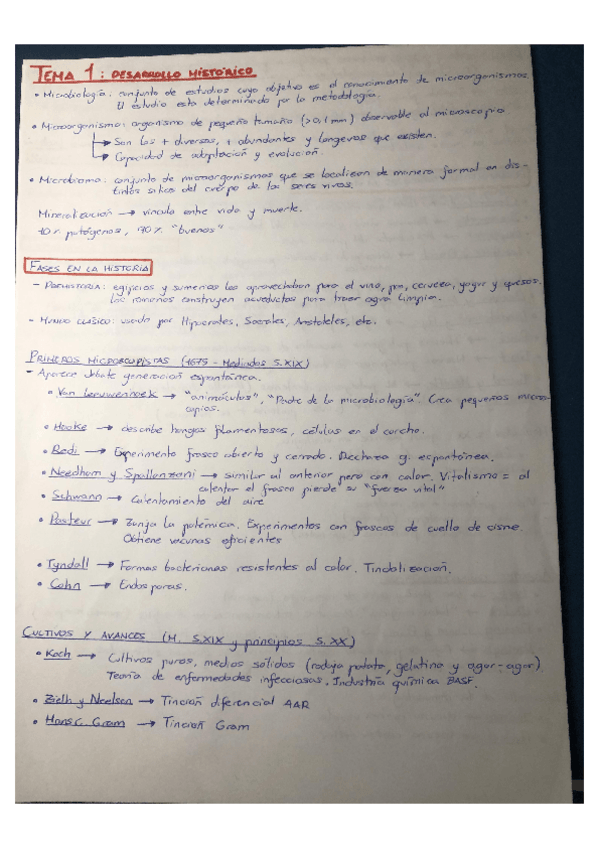 TEMA 1: DESARROLLO HISTÓRICO
• Microbiología: conjunto de estudios cuyo objetivo es el conocimiento de microorganismos.
El estudio esta determinado por la metodología.
• Microorganismo: organismo de pequeño tamaño (>0,1mm) observable al microscopio
→ Son los + diversos, + abundantes y longevos que existen.
→ Capacidad de adaptación y evolución.
• Microbioma: conjunto de microorganismos que se localizan de manera formal en dis-
tintos sitios del cuerpo de los seres vivos.
Mineralización → vínculo entre vida y muerte.
10% patógenos, 90% "buenos"
FASES EN LA HISTORIA
- PREHISTORIA: egipcios y sumerios los aprovechaban para el vino, pan, cerveza, yogur y quesos.
Los romanos construyen acueductos para traer agua limpia.
- MUNDO CLÁSICO: usado por Hipócrates, Sócrates, Aristóteles, etc.
PRIMEROS MICROSCOPISTAS (1675 - Mediados S.XIX)
- Aparece debate generación espontánea.
• Van Leeuwenhoek → "animáculos", "Padre de la microbiología". Crea pequeños micros-
copios.
• Hooke → describe hongos filamentosos, células en el corcho.
• Redi → Experimento frasco abierto y cerrado. Rechaza g. espontánea.
• Needham y Spallanzani → similar al anterior pero con calor. Vitalismo = al
calentar el frasco pierde su "fuerza vital"
• Schwann → Calentamiento del aire
• Pasteur → Zanja la polémica. Experimentos con frascos de cuello de cisne.
Obtiene vacunas eficientes
• Tyndall → Formas bacterianas resistentes al calor. Tindalización.
• Cohn → Endosporas.
CULTIVOS Y AVANCES (M. S.XIX y principios S. XX)
• Koch → Cultivos puros, medios sólidos (rodaja patata, gelatina y agar-agar)
Teoría de enfermedades infecciosas. Industria química BASF.
• Zielh y Neelsen → Tinción diferencial AAR
• Hans C. Gram → Tinción Gram